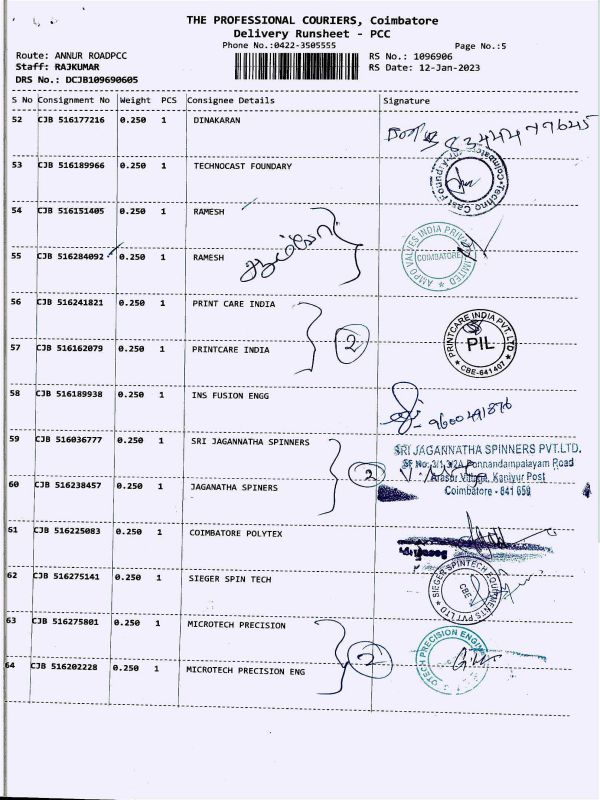 THE PROFESSIONAL COURIERS, Coimbatore
Delivery Runsheet - PCC
Phone No.:0422-3505555
Page No.:5
Route: ANNUR ROADPCC
RS No.: 1096906
Staff: RAJKUMAR
RS Date: 12-Jan-2023
DRS No.: DCJB109690605
S No Consignment No Weight PCS Consignee Details Signature
52 CJB 516177216 0.250 1 DINAKARAN
53 CJB 516189966 0.250 1 TECHNOCAST FOUNDARY
54 CJB 516151405 0.250 1 RAMESH
55 CJB 516284092 0.250 1 RAMESH
AMPO VALVES INDIA PRIVATE LIMITED
COIMBATORE
56 CJB 516241821 0.250 1 PRINT CARE INDIA
2
PRINTCARE INDIA PVT. LTD
PIL
CBE-641407
57 CJB 516162079 0.250 1 PRINTCARE INDIA
58 CJB 516189938 1 INS FUSION ENGG
9600491876
59 CJB 516036777 0.250 1 SRI JAGANNATHA SPINNERS
SRI JAGANNATHA SPINNERS PVT.LTD.
SF No:3/1,3/2A, Ponnandampalayam Road
Arasur Village, Kaniyur Post
Coimbatore - 641 659
2
60 CJB 516238457 0.250 1 JAGANATHA SPINERS
61 CJB 516225083 0.250 1 COIMBATORE POLYTEX
62 CJB 516275141 0.250 1 SIEGER SPIN TECH
SIEGER SPINTECH EQUIPMENTS PVT LTD
CBE
63 CJB 516275801 0.250 1 MICROTECH PRECISION
2
64 CJB 516202228 0.250 1 MICROTECH PRECISION ENG